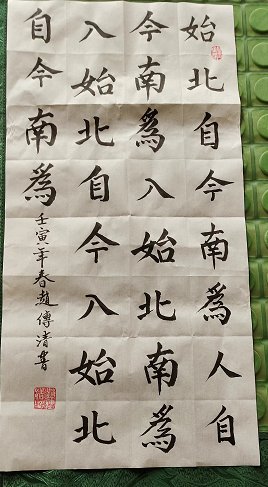 始北自今南為人自
今南為八始北南為
八始北自今八始北
自今南為壬寅年春趙傳清書